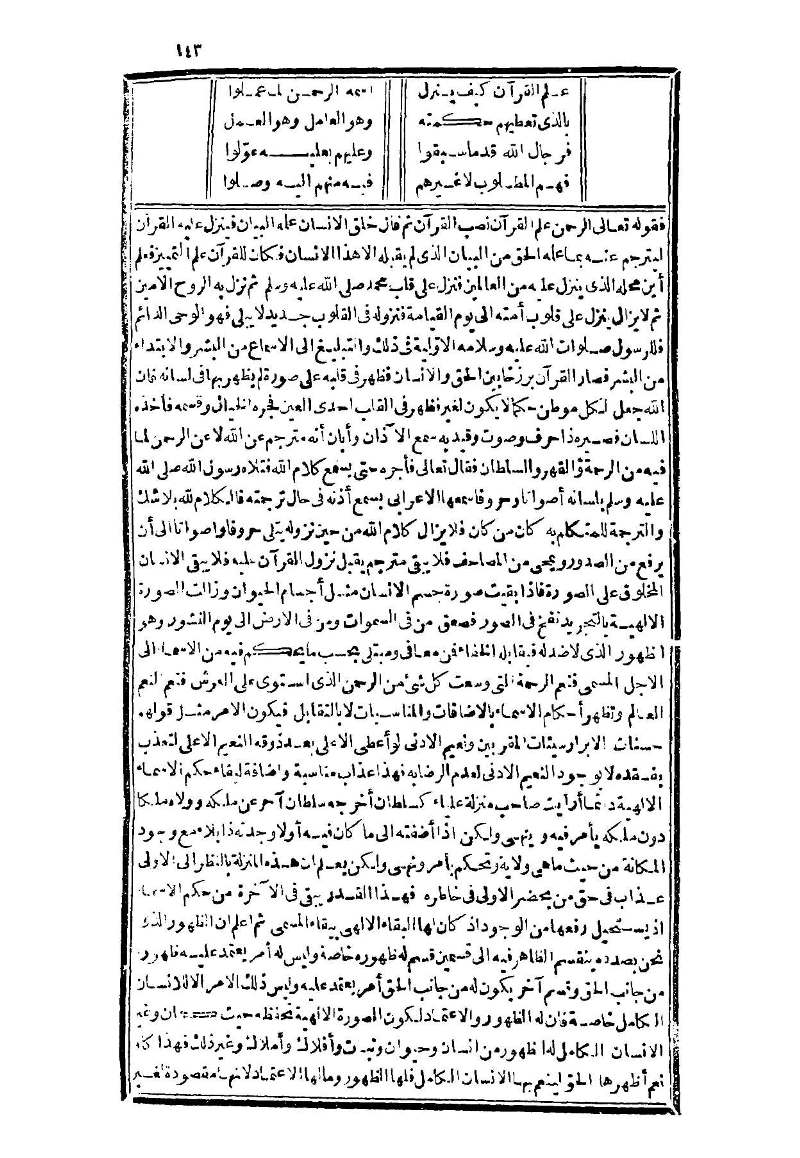 ١٤٣
علم القرآن كيف ينزل انه الرحمن لما عملوا
بالذى تعطيهم حكمته وهو العامل وهو العمل
فرجال الله قد ما سبقوا وعليهم بعليه عوّلوا
فهم المطلوب لا غيرهم فبه منهم اليه وصلوا
فقوله تعالى الرحمن علم القرآن نصب القرآن ثم قال خلق الانسان علمه البيان فينزل عليه القرآن
ليترجم عنه بما علمه الحق من البيان الذى لم يقبله الا هذا الانسان فكان للقرآن علم التمييز فعلم
أين محله الذى ينزل عليه من العالمين فنزل على قلب محمد صلى الله عليه وسلم ثم نزل به الروح الامين
ثم لا يزال ينزل على قلوب أمته الى يوم القيامة فنزوله فى القلوب جديد لا يبلى فهو الوحى الدائم
فللرسول صلوات الله عليه وسلامه الاوّلية فى ذلك والتبليغ الى الاسماع من البشر والابتداء
من البشر فصار القرآن برزخا بين الحق والانسان فظهر فى قلبه على صورة لم يظهر بها فى لسانه فان
الله جعل لكل موطن حكما لا يكون لغيره فظهر فى القلب احدى العين فجره الخيال وقسمه فأخذه
اللسان فصيره ذا حرف وصوت وقيد به سمع الآذان وأبان أنه مترجم عن الله لا عن الرحمن لما
فيه من الرحمة والقهر والسلطان فقال تعالى فأجره حتى يسمع كلام الله فتلاه رسول الله صلى الله
عليه وسلم بلسانه أصواتا وحروفا سمعها الاعرابى بسمع أذنه فى حال ترجمته فالكلام لله بلا شك
والترجمة للمتكلم به كان من كان فلا يزال كلام الله من حين نزوله يتلى حروفا وأصواتا الى أن
يرفع من الصدور ويمحى من المصاحف فلا يبقى مترجم يقبل نزول القرآن عليه فلا يبقى الانسان
المخلوق على الصورة فاذا بقيت صورة جسم الانسان مثل أجسام الحيوان وزالت الصورة
الالهية بالتجريد نفخ فى الصور فصعق من فى السموات ومن فى الارض الى يوم النشور وهو
الظهور الذى لا ضد له فيقابله الخفاء فمن معافى ومبتلى بحسب ما يحكم فيه من الاسماء الى
الاجل المسمى فتعم الرحمة التى وسعت كل شئ من الرحمن الذى استوى على العرش فتعم النعم
العالم وتظهر أحكام الاسماء بالاضافات والمناسبات لا بالتقابل فيكون الامر مثل قولهم
حسنات الابرار سيئات المقربين ونعيم الادنى لو أعطى الاعلى بعد ذوقه النعيم الاعلى لتعذب
بفقده لا بوجود النعيم الادنى لعدم الرضا به فهذا عذاب مناسبة واضافة لبقاء حكم الاسماء
الالهية دائما أرأيت صاحب منزلة علياء كسلطان أخرجه سلطان آخر عن ملكه وولاه ملكا
دون ملكه يأمر فيه وينهى ولكن اذا أضفته الى ما كان فيه أوّلا وجدته ذا بلاء مع وجود
المكانة من حيث ماهى ولاية وتحكم بأمر ونهى ولكن يعلم ان هذه المنزلة بالنظر الى الاولى
عذاب فى حق من يحضر الاولى فى خاطره فهذا القدر يبقى فى الآخرة من حكم الاسماء
اذ يستحيل رفعها من الوجود اذ كان لها البقاء الالهى ببقاء المسمى ثم اعلم ان الظهور الذى
نحن بصدده ينقسم الظاهر فيه الى قسمين قسم له ظهوره خاصة وليس له أمر يعتمد عليه فظهوره
من جانب الحق وقسم آخر يكون له من جانب الحق أمر يعتمد عليه وليس ذلك الامر الا للانسان
الكامل خاصة فان له الظهور والاعتماد لكون الصورة الالهية تحفظه حيث كان وغير
الانسان الكامل له الظهور من انسان وحيوان ونبت وأفلاك وأملاك وغير ذلك فهذا كله
نعم أظهرها الحق لينعم بها الانسان الكامل فلها الظهور وما لها الاعتماد لانها مقصودة لغير